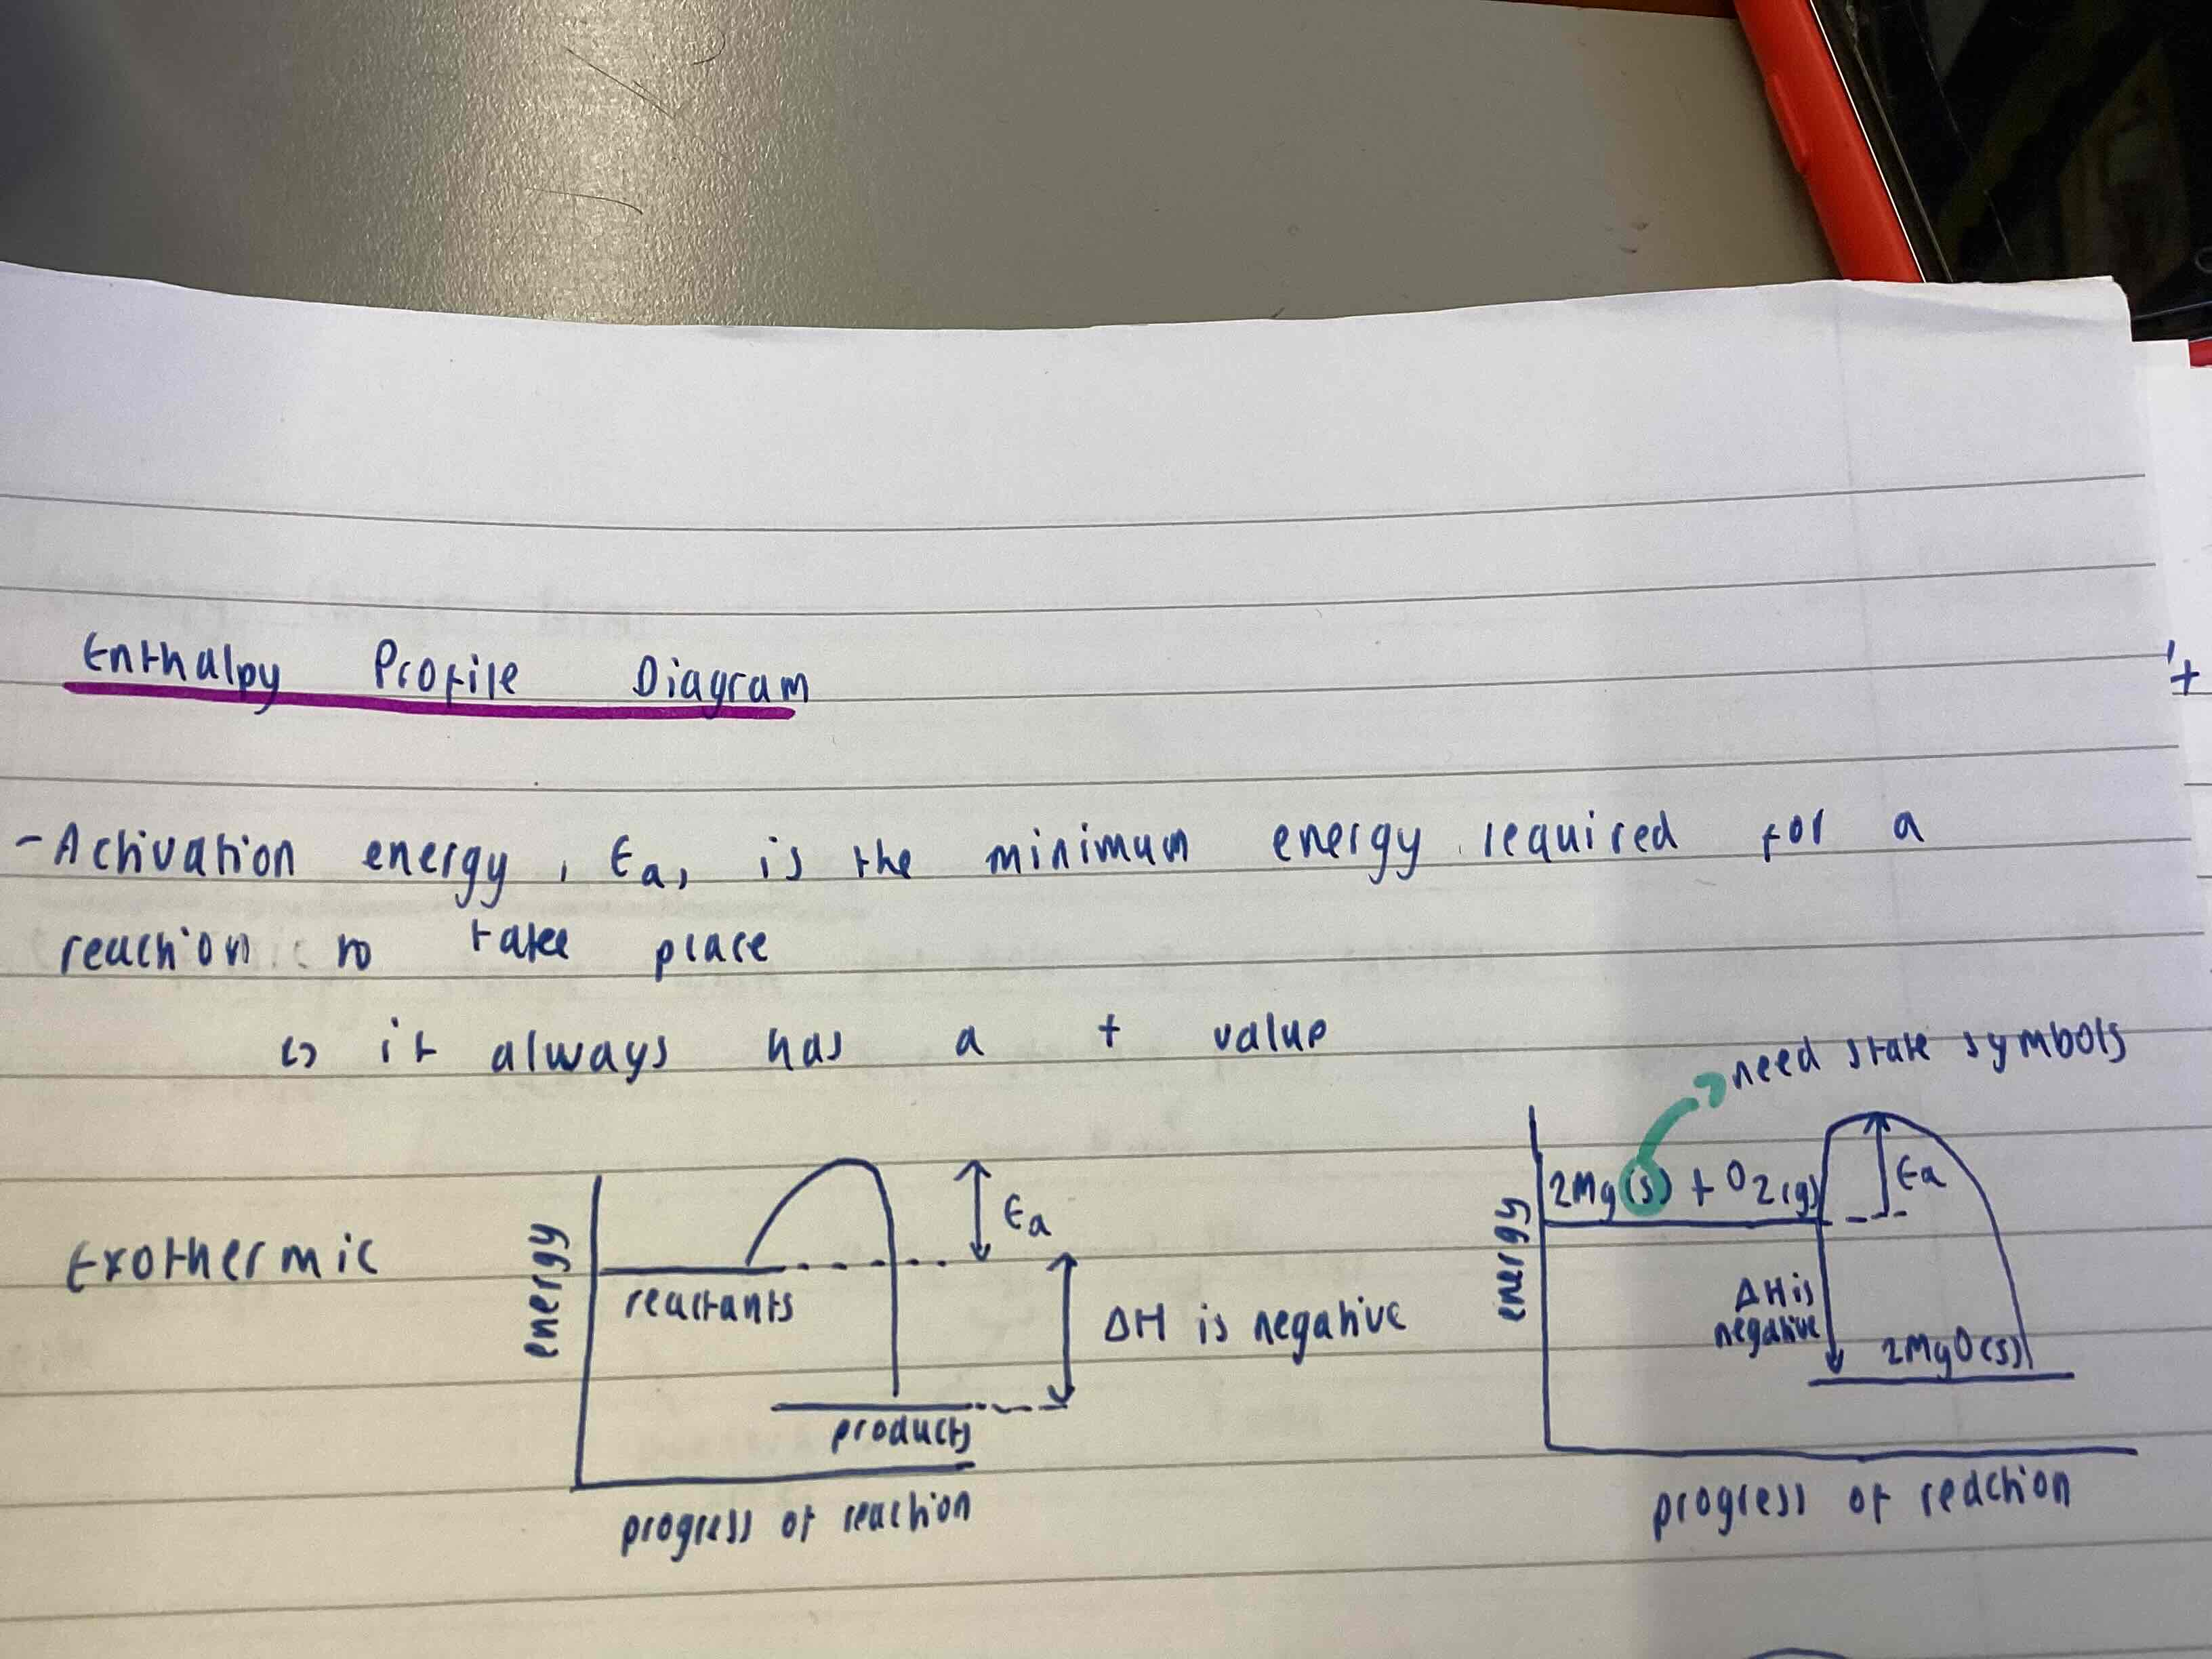 Enthalpy Profile Diagram
- Activation energy, Ea, is the minimum energy required for a
reaction to take place
↳ it always has a + value
need state symbols
Exothermic
energy
reactants
products
progress of reaction
Ea
ΔH is negative
energy
2Mg(s) + O2(g)
Ea
ΔH is
negative
2MgO(s)
progress of reaction